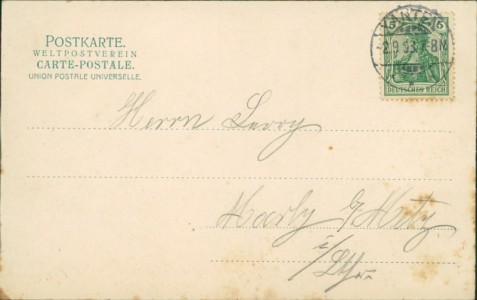 POSTKARTE.
WELTPOSTVEREIN
CARTE-POSTALE.
UNION POSTALE UNIVERSELLE.
5 5
2.9.03.7-8N
DEUTSCHES REICH
Herrn Levy
Marly b/Metz
i/Lthr.